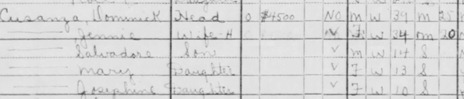 Cusanza, Dominick Head O $4500 NO M W 39 M 25
—— Jennie Wife-H V F W 34 M 20
—— Salvadore Son V M W 14 S
—— Mary Daughter V F W 13 S
—— Josephine Daughter V F W 10 S